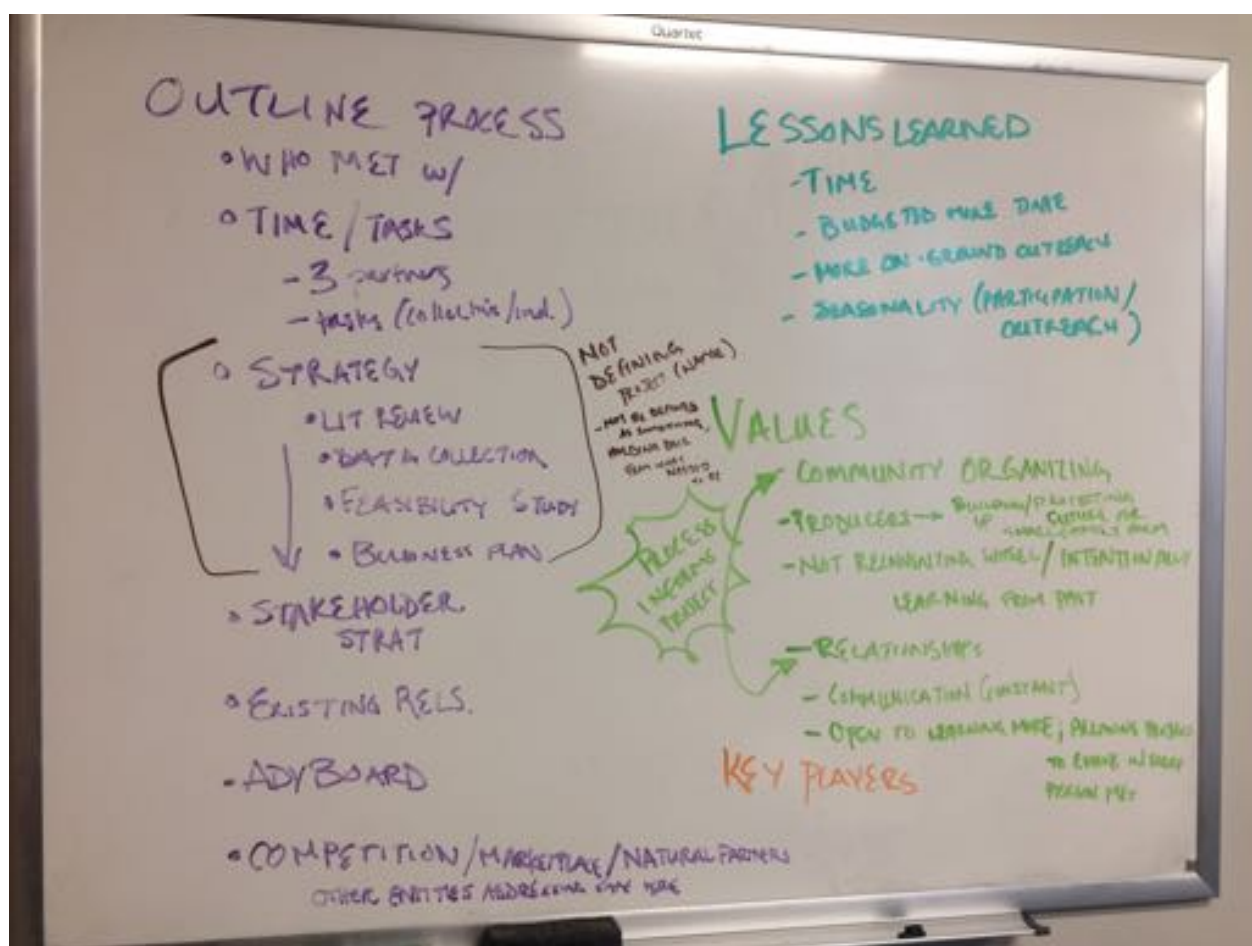 Quartet
OUTLINE PROCESS
• WHO MET W/
• TIME / TASKS
- 3 partners
- tasks (collective/ind.)
• STRATEGY
• LIT REVIEW
• DATA COLLECTION
• FEASIBILITY STUDY
• BUSINESS PLAN
• STAKEHOLDER
STRAT
• EXISTING RELS.
- ADV BOARD
• COMPETITION/MARKETPLACE/NATURAL PARTNERS
OTHER ENTITIES ADDRESSING
NOT
DEFINING
PROJECT (NAME)
- NOT BE DEFINED
AS SOMETHING,
FROM WHAT
NEEDED
TO BE
LESSONS LEARNED
- TIME
- BUDGETED MORE TIME
- MORE ON-GROUND OUTREACH
- SEASONALITY (PARTICIPATION/
OUTREACH)
VALUES
PROCESS
INFORMS
PROJECT
- COMMUNITY ORGANIZING
- PRODUCERS → BUILDING/PROTECTING
- NOT REINVENTING WHEEL/INTENTIONALLY
LEARNING FROM PAST
- RELATIONSHIPS
- COMMUNICATION (CONSTANT)
- OPEN TO LEARNING MORE; ALLOWING PROJECT
TO EVOLVE W/ EVERY
PERSON MET
KEY PLAYERS